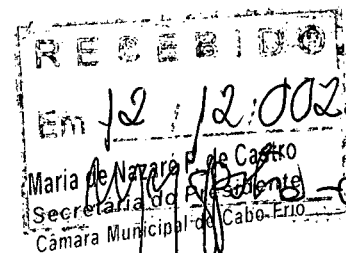 RECEBIDO
Em 12 / 12.002
Maria de Nazaré P. de Castro
Secretaria do Presidente
Câmara Municipal de Cabo Frio